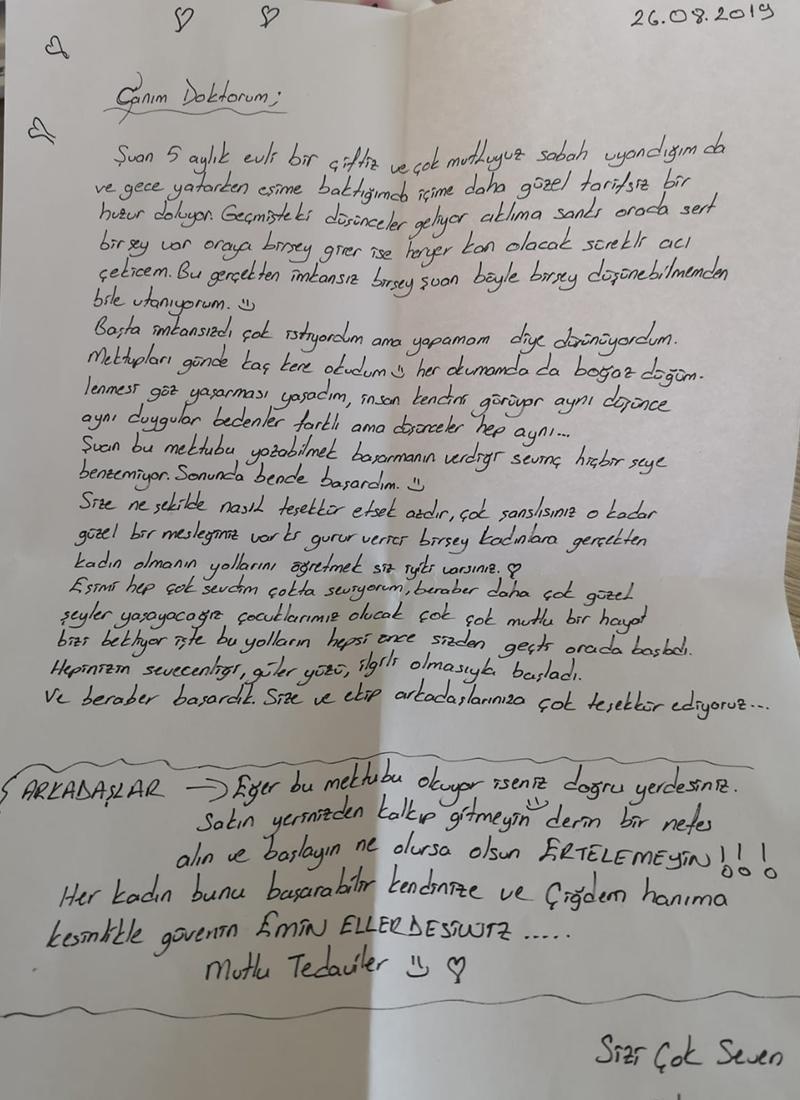 26.08.2019
Canım Doktorum;
Şuan 5 aylık evli bir çiftiz ve çok mutluyuz sabah uyandığım da
ve gece yatarken eşime baktığımda içime daha güzel tarifsiz bir
huzur doluyor. Geçmişteki düşünceler geliyor aklıma sanki orada sert
birşey var oraya birşey girer ise heryer kan olacak sürekli acı
çekicem. Bu gerçekten imkansız birşey şuan böyle birşey düşünebilmemden
bile utanıyorum. ☺
Başta imkansızdı çok istiyordum ama yapamam diye düşünüyordum.
Mektupları günde kaç kere okudum ☺ her okumamda da boğaz düğüm-
lenmesi göz yaşarması yaşadım, insan kendini görüyor aynı düşünce
aynı duygular bedenler farklı ama düşünceler hep aynı...
Şuan bu mektubu yazabilmek başarmanın verdiği sevinç hiçbir şeye
benzemiyor. Sonunda bende başardım. ☺
Size ne şekilde nasıl teşekkür etsek azdır, çok şanslısınız o kadar
güzel bir mesleğiniz var ki gurur verici birşey kadınlara gerçekten
kadın olmanın yollarını öğretmek siz iyiki varsınız. ♡
Eşimi hep çok sevdim çokta seviyorum, beraber daha çok güzel
şeyler yaşayacağız çocuklarımız olucak çok çok mutlu bir hayat
bizi bekliyor işte bu yolların hepsi önce sizden geçti orada başladı.
Hepinizin sevecenliği, güler yüzü, ilgili olmasıyla başladı.
Ve beraber başardık. Size ve ekip arkadaşlarınıza çok teşekkür ediyoruz...
ARKADAŞLAR → Eğer bu mektubu okuyor iseniz doğru yerdesiniz.
Sakın yerinizden kalkıp gitmeyin ☺ derin bir nefes
alın ve başlayın ne olursa olsun ERTELEMEYİN!!!
Her kadın bunu başarabilir kendinize ve Çiğdem hanıma
kesinlikle güvenin EMİN ELLERDESİNİZ .....
Mutlu Tedaviler ☺ ♡
Sizi Çok Seven